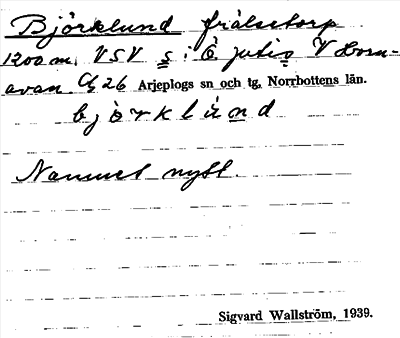 Björklund frälsetorp
1200 m. VSV s i Ö jutis V Horn-
avan Cg 26 Arjeplogs sn och tg, Norrbottens län.
björklund
Namnet nytt.
Sigvard Wallström, 1939.